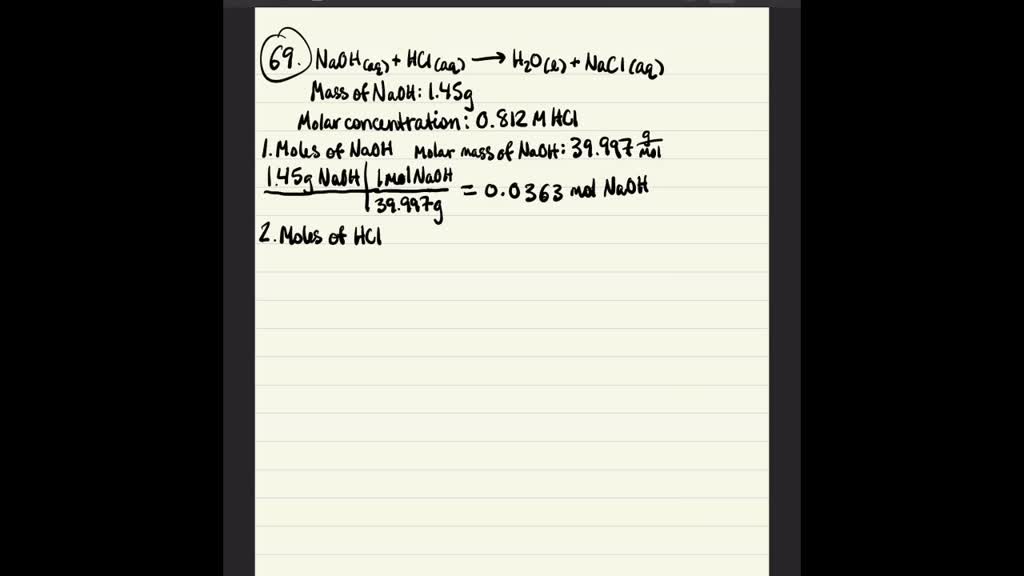 69. NaOH(aq) + HCl(aq) → H₂O(l) + NaCl(aq)
Mass of NaOH: 1.45g
Molar concentration: 0.812 M HCl
1. Moles of NaOH Molar mass of NaOH: 39.997 g/mol
1.45g NaOH | 1 mol NaOH
= 0.0363 mol NaOH
39.997g
2. Moles of HCl